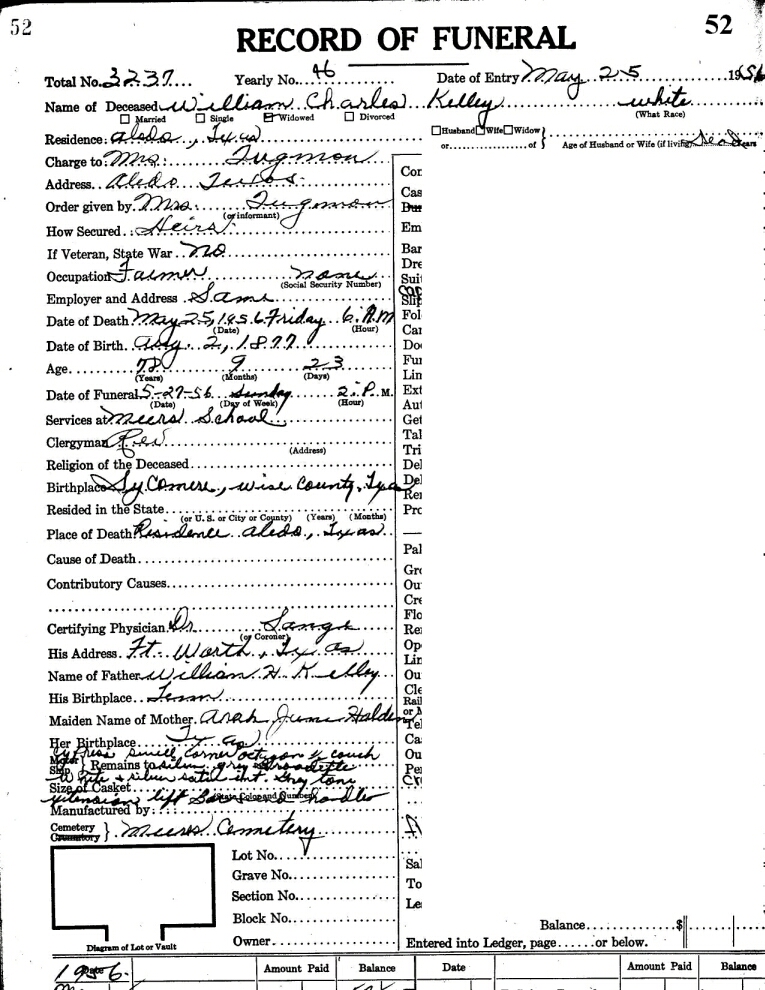 52
52
RECORD OF FUNERAL
Total No. 3237 Yearly No. 46 Date of Entry May 25 1956
Name of Deceased William Charles Kelley white
(What Race)
Married Single Widowed Divorced
Husband Wife Widow
Residence: Aledo, Texas
or of Age of Husband or Wife (if living) Dead Years
Charge to: Mrs.
Address Aledo Texas
Order given by Mrs.
(or informant)
How Secured Heirs
If Veteran, State War no
Occupation Farmer none
(Social Security Number)
Employer and Address Same
Date of Death May 25, 1956 Friday 6 A.M
(Date) (Hour)
Date of Birth Aug. 2, 1877
Age 78 9 23
(Years) (Months) (Days)
Date of Funeral 5-27-56 Sunday 2 P. M.
(Date) (Day of Week) (Hour)
Services at Meers School
Clergyman Rev
(Address)
Religion of the Deceased
Birthplace Wise County,
Resided in the State
(or U. S. or City or County) (Years) (Months)
Place of Death Residence Aledo, Texas
Cause of Death
Contributory Causes
Certifying Physician Dr
(or Coroner)
His Address Ft. Worth, Texas
Name of Father William H. Kelley
His Birthplace Tenn
Maiden Name of Mother
Her Birthplace
Motor
Ship
Remains to
Size of Casket
(State Color and Number)
extension lift handles
Manufactured by:
Cemetery
Crematory
Meers Cemetery
Lot No.
Grave No.
Section No.
Block No.
Owner
Diagram of Lot or Vault
Cor
Cas
Bur
Em
Bar
Dre
Suit
Slip
Fol
Car
Doo
Fun
Lin
Ext
Aut
Get
Tal
Tri
Del
Del
Ren
Pro
Pal
Gro
Ou
Cre
Flo
Rei
Op
Lin
Ou
Cle
Rail
or M
Tel
Ca
Ou
Per
Sal
To
Le
Balance $
Entered into Ledger, page or below.
1956
Date Amount Paid Balance Date Amount Paid Balance